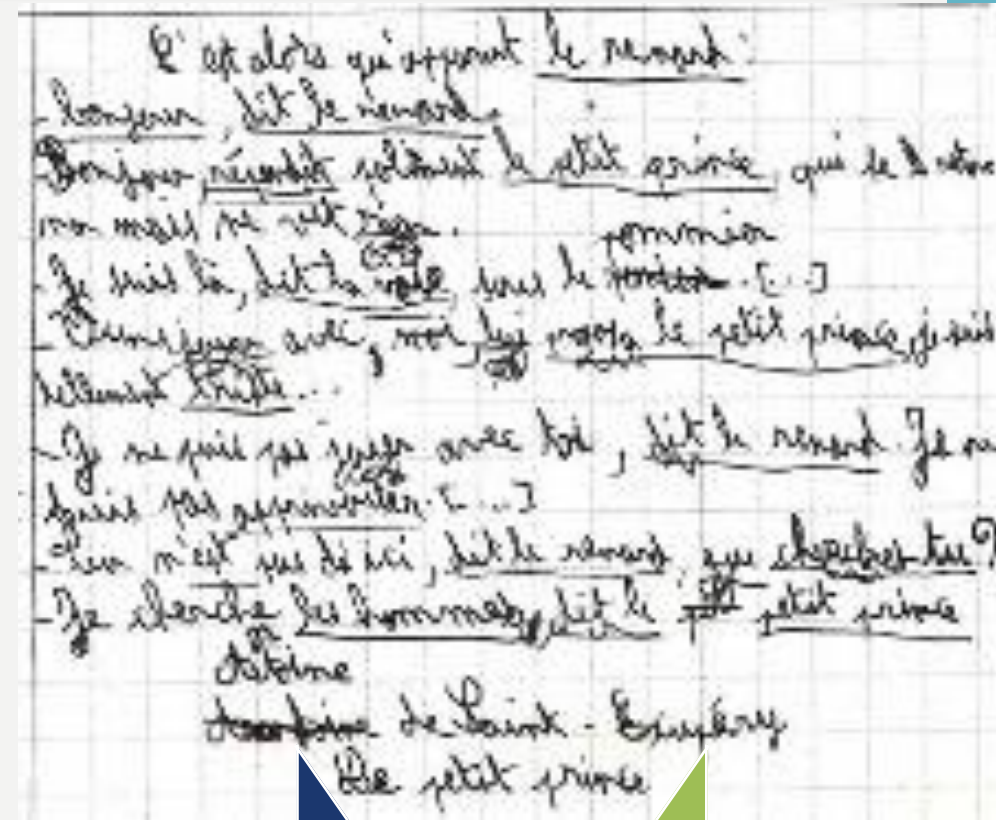 C'est alors qu'apparut le renard :
- bonjour, dit le renard.
- Bonjour répondit poliment le petit prince, qui se retour
na mais ne vit rien.
- Je suis là, dit la voix, sous le pommier. [...]
- Viens jouer avec, moi, lui le petit prince, je suis
tellement triste...
- Je ne puis pas jouer avec toi, dit le renard. Je ne
suis pas apprivoiser. [...]
- Tu n'est pas d'ici, dit le renard, que cherches tu ?
- Je cherche les hommes, dit le petit prince
Antoine
de Saint - Exupéry
Le petit prince